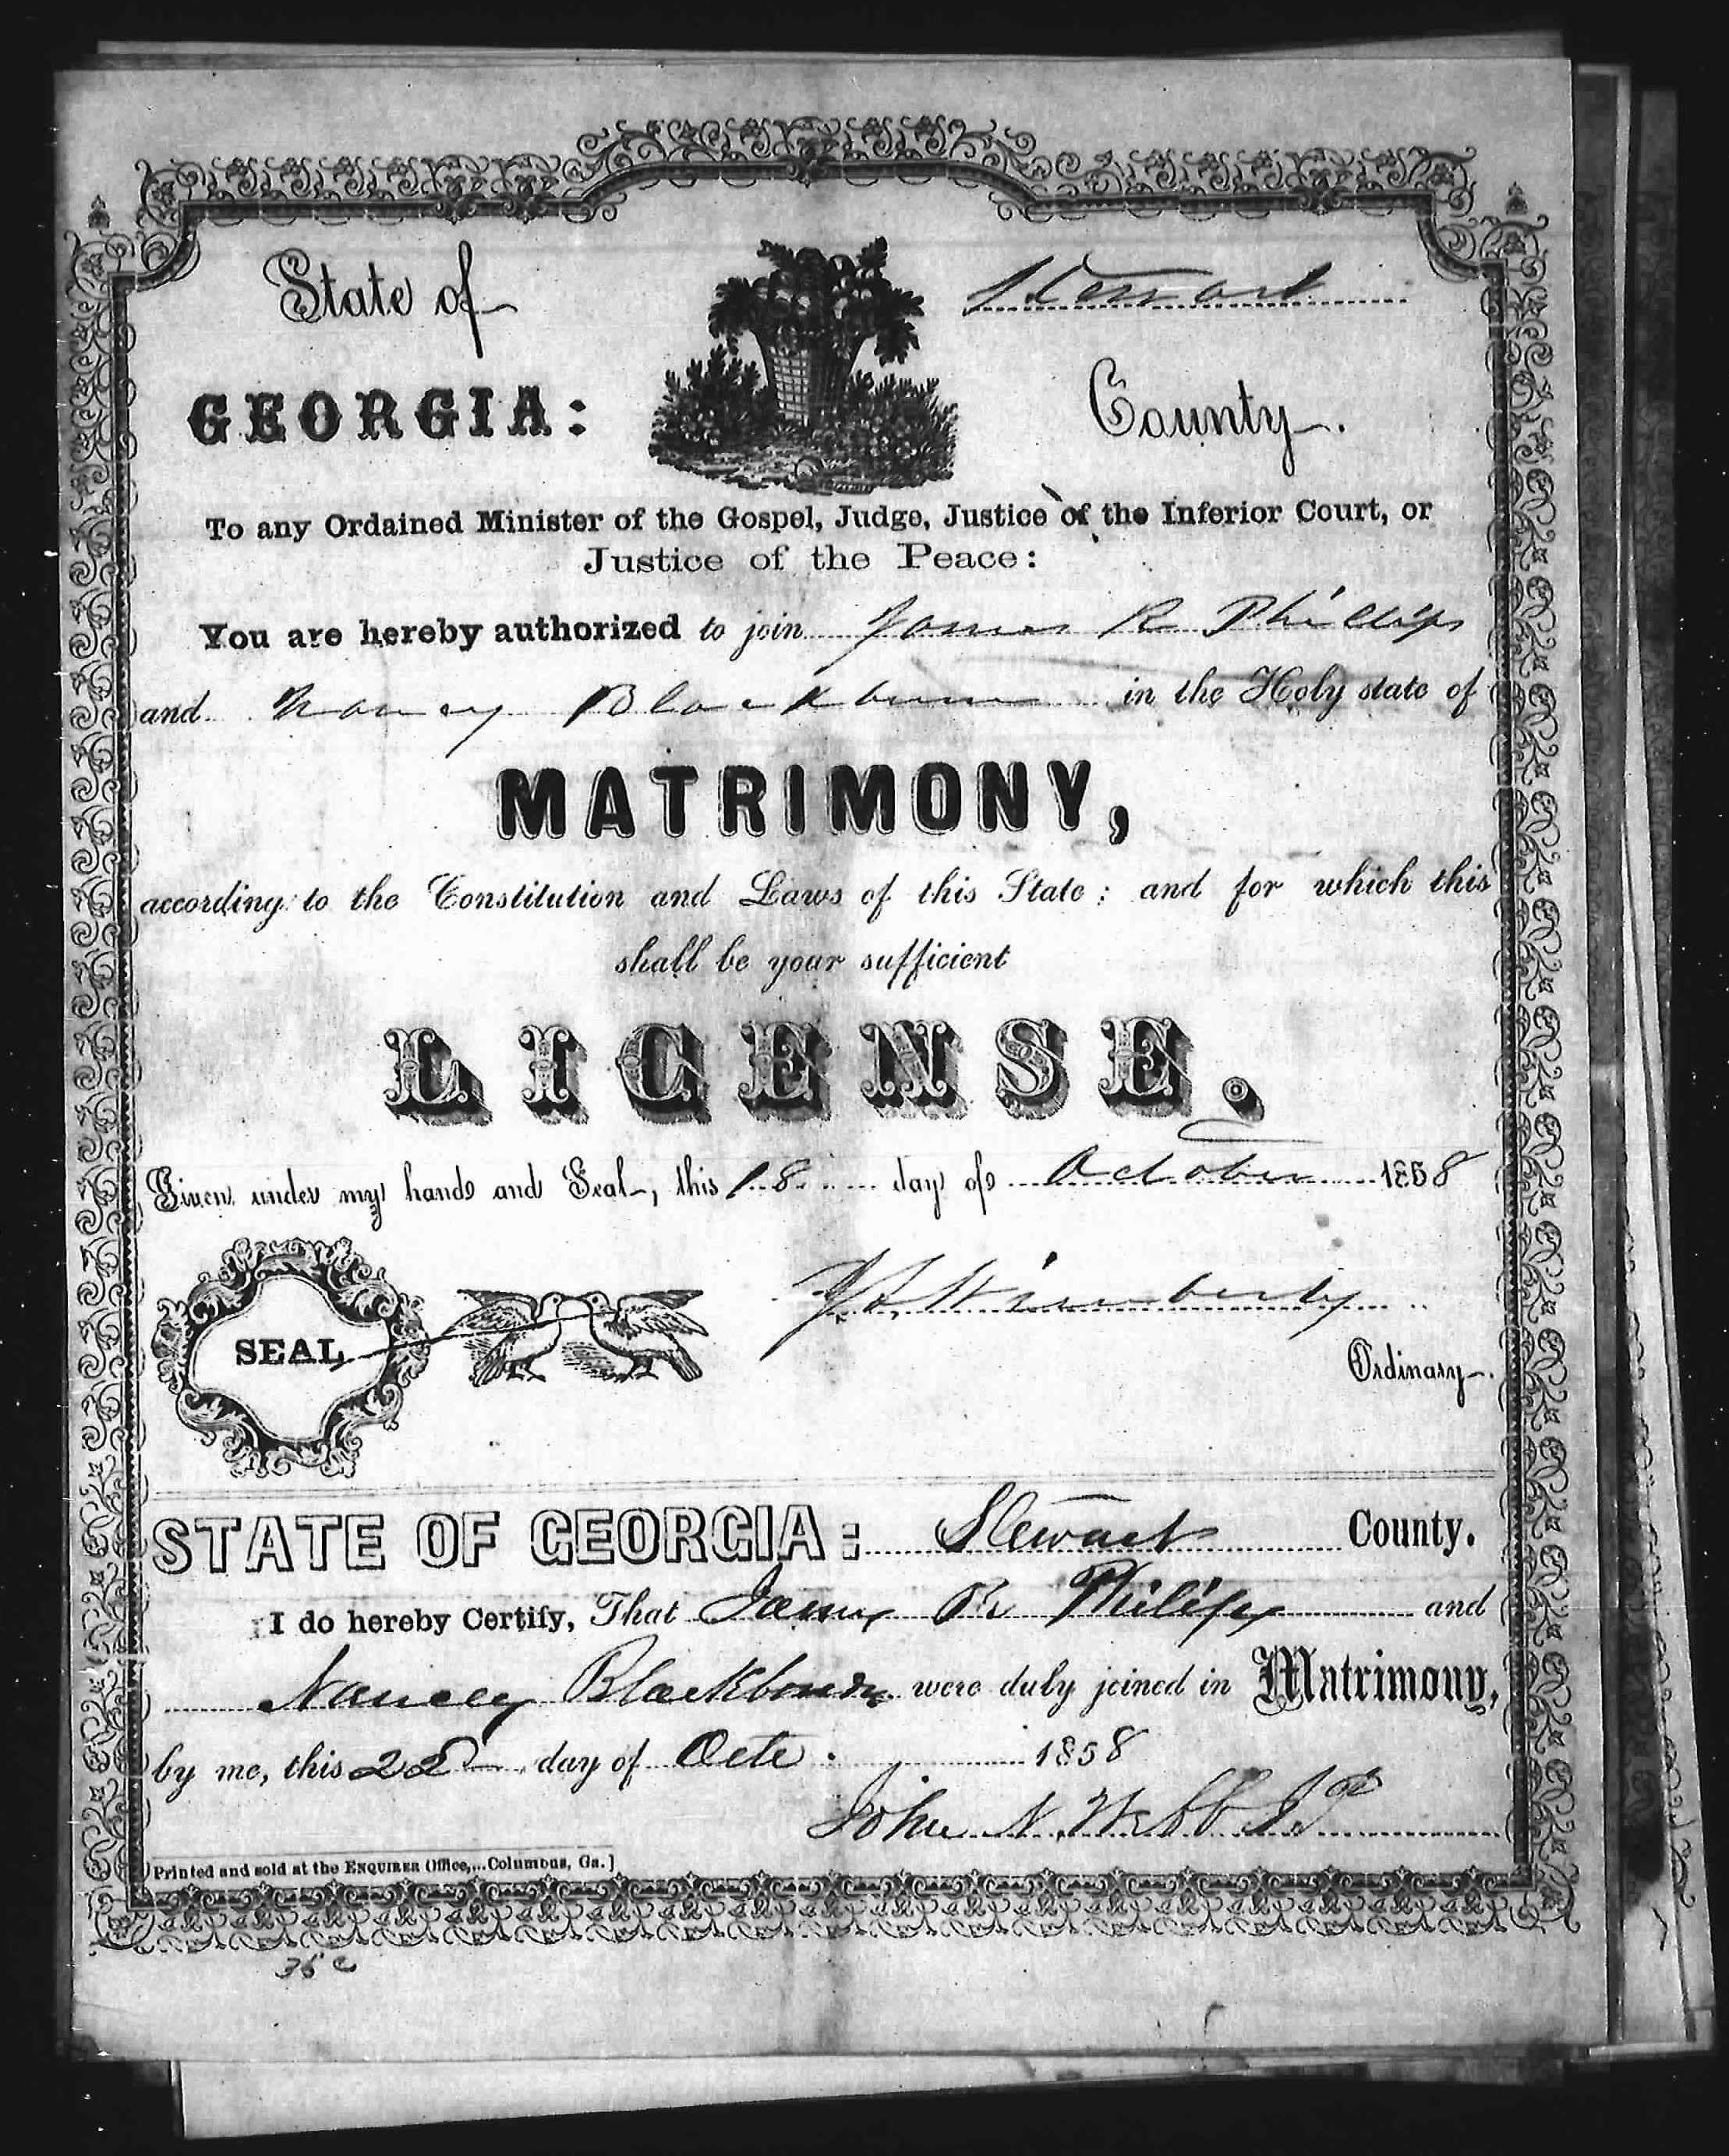 State of
Stewart
GEORGIA:
County.
To any Ordained Minister of the Gospel, Judge, Justice of the Inferior Court, or
Justice of the Peace:
You are hereby authorized to join James R Phillips
and Nancy Blackburn in the Holy state of
MATRIMONY,
according to the Constitution and Laws of this State: and for which this
shall be your sufficient
LICENSE.
Given under my hand and Seal, this 18 day of October 1858
SEAL
J. A. Wimberly
Ordinary.
STATE OF GEORGIA: Stewart County.
I do hereby Certify, That James R Philips and
Nancy Blackbourn were duly joined in Matrimony,
by me, this 22 day of Octe. 1858
John N. Webb J.P
Printed and sold at the ENQUIRER Office,...Columbus, Ga.]